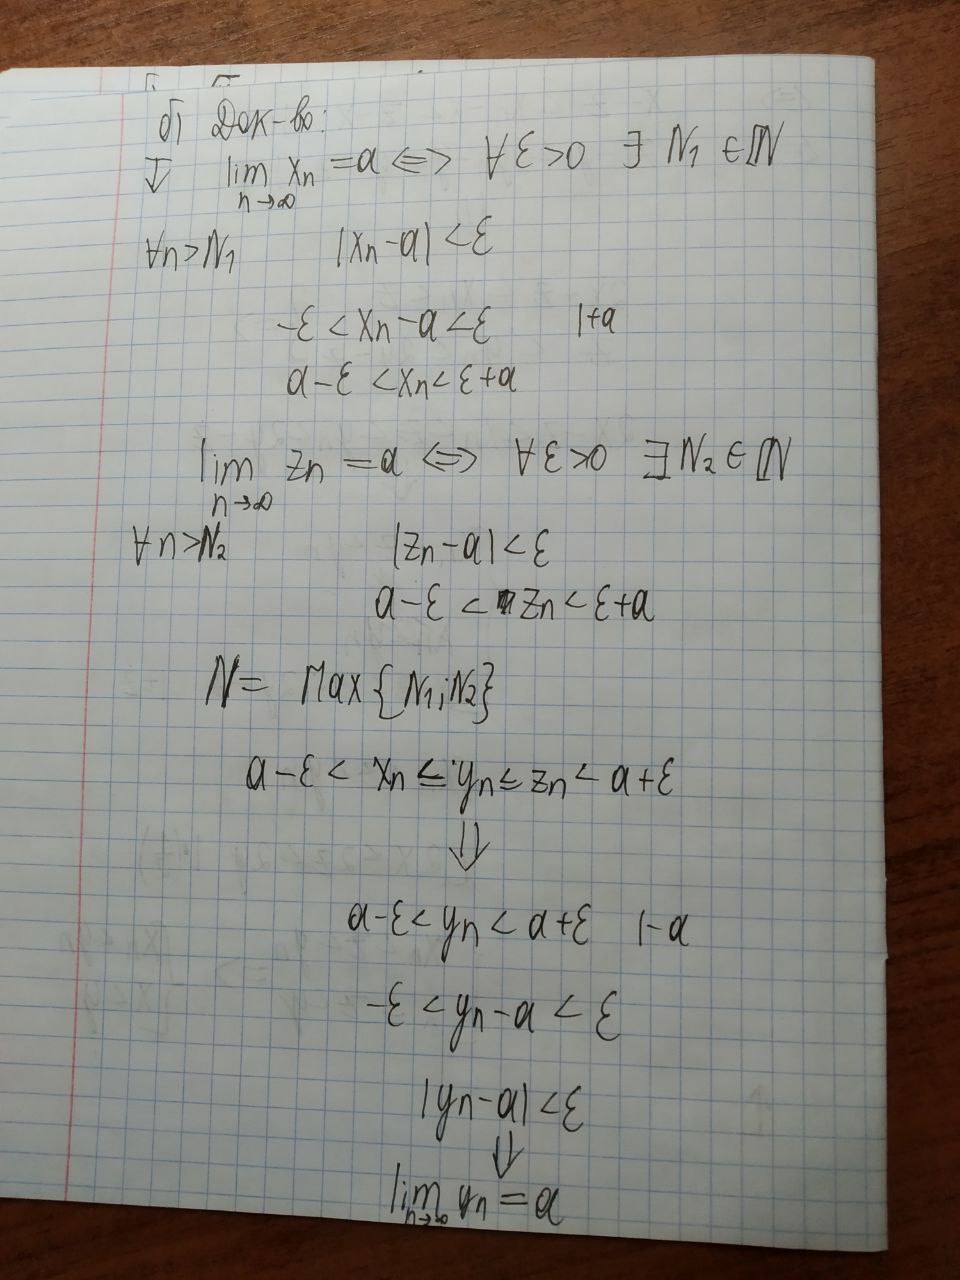 б) Док-во:
I lim xn = a <=> ∀ ε > 0 ∃ N1 ∈ ℕ
n→∞
∀n > N1 |xn - a| < ε
-ε < xn - a < ε |+a
a - ε < xn < ε + a
lim zn = a <=> ∀ ε > 0 ∃ N2 ∈ ℕ
n→∞
∀n > N2 |zn - a| < ε
a - ε < zn < ε + a
N = Max {N1; N2}
a - ε < xn ≤ yn ≤ zn < a + ε
⇓
a - ε < yn < a + ε |-a
-ε < yn - a < ε
|yn - a| < ε
⇓
lim yn = a
n→∞